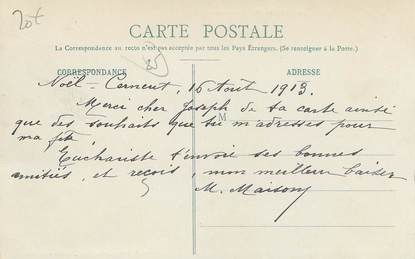 20f
CARTE POSTALE
La Correspondance au recto n'est pas acceptée par tous les Pays Étrangers. (Se renseigner à la Poste.)
CORRESPONDANCE
ADRESSE
85
Noël-Cerneux, 16 Août 1913.
Merci cher Joseph de ta carte ainsi
que des souhaits que tu m'adresses pour
M
ma fête
Euchariste t'envoie ses bonnes
amitiés, et reçois, mon meilleur baiser
M.